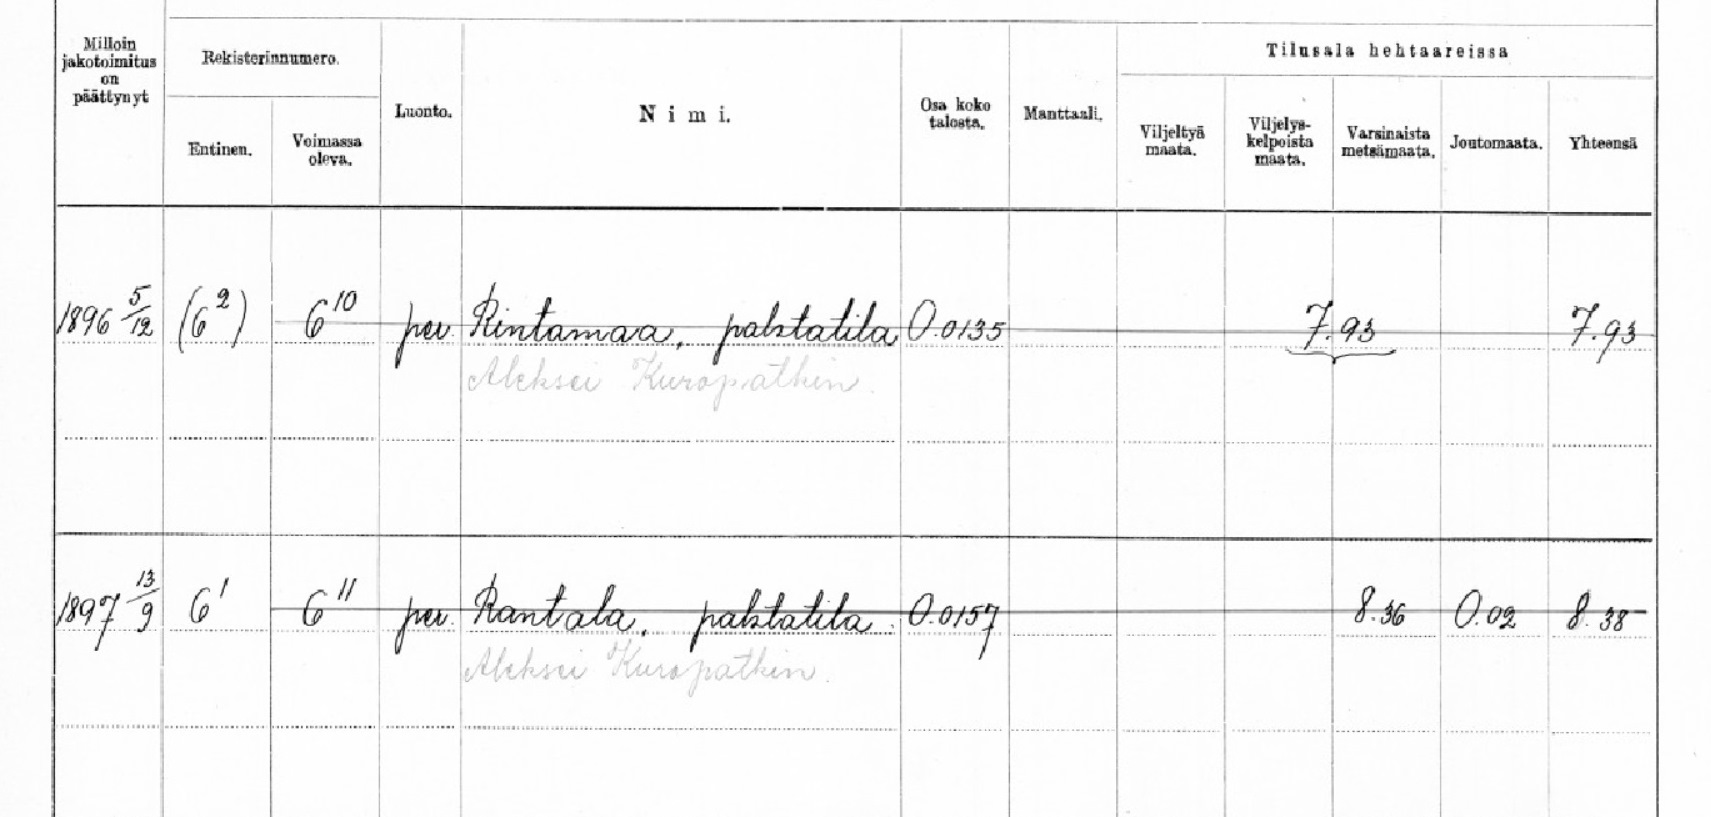 Milloin jakotoimitus on päättynyt
Rekisterinnumero.
Entinen.
Voimassa oleva.
Luonto.
Nimi.
Osa koko talosta.
Manttaali.
Tilusala hehtaareissa
Viljeltyä maata.
Viljelys-kelpoista maata.
Varsinaista metsämaata.
Joutomaata.
Yhteensä
1896 5/12 (6²) 6¹⁰ per. Rintamaa, palstatila 0.0135 7.93 7.93
Aleksei Kuropatkin.
1897 13/9 6¹ 6¹¹ per. Rantala, palstatila. 0.0157 8.36 0.02 8.38
Aleksei Kuropatkin.